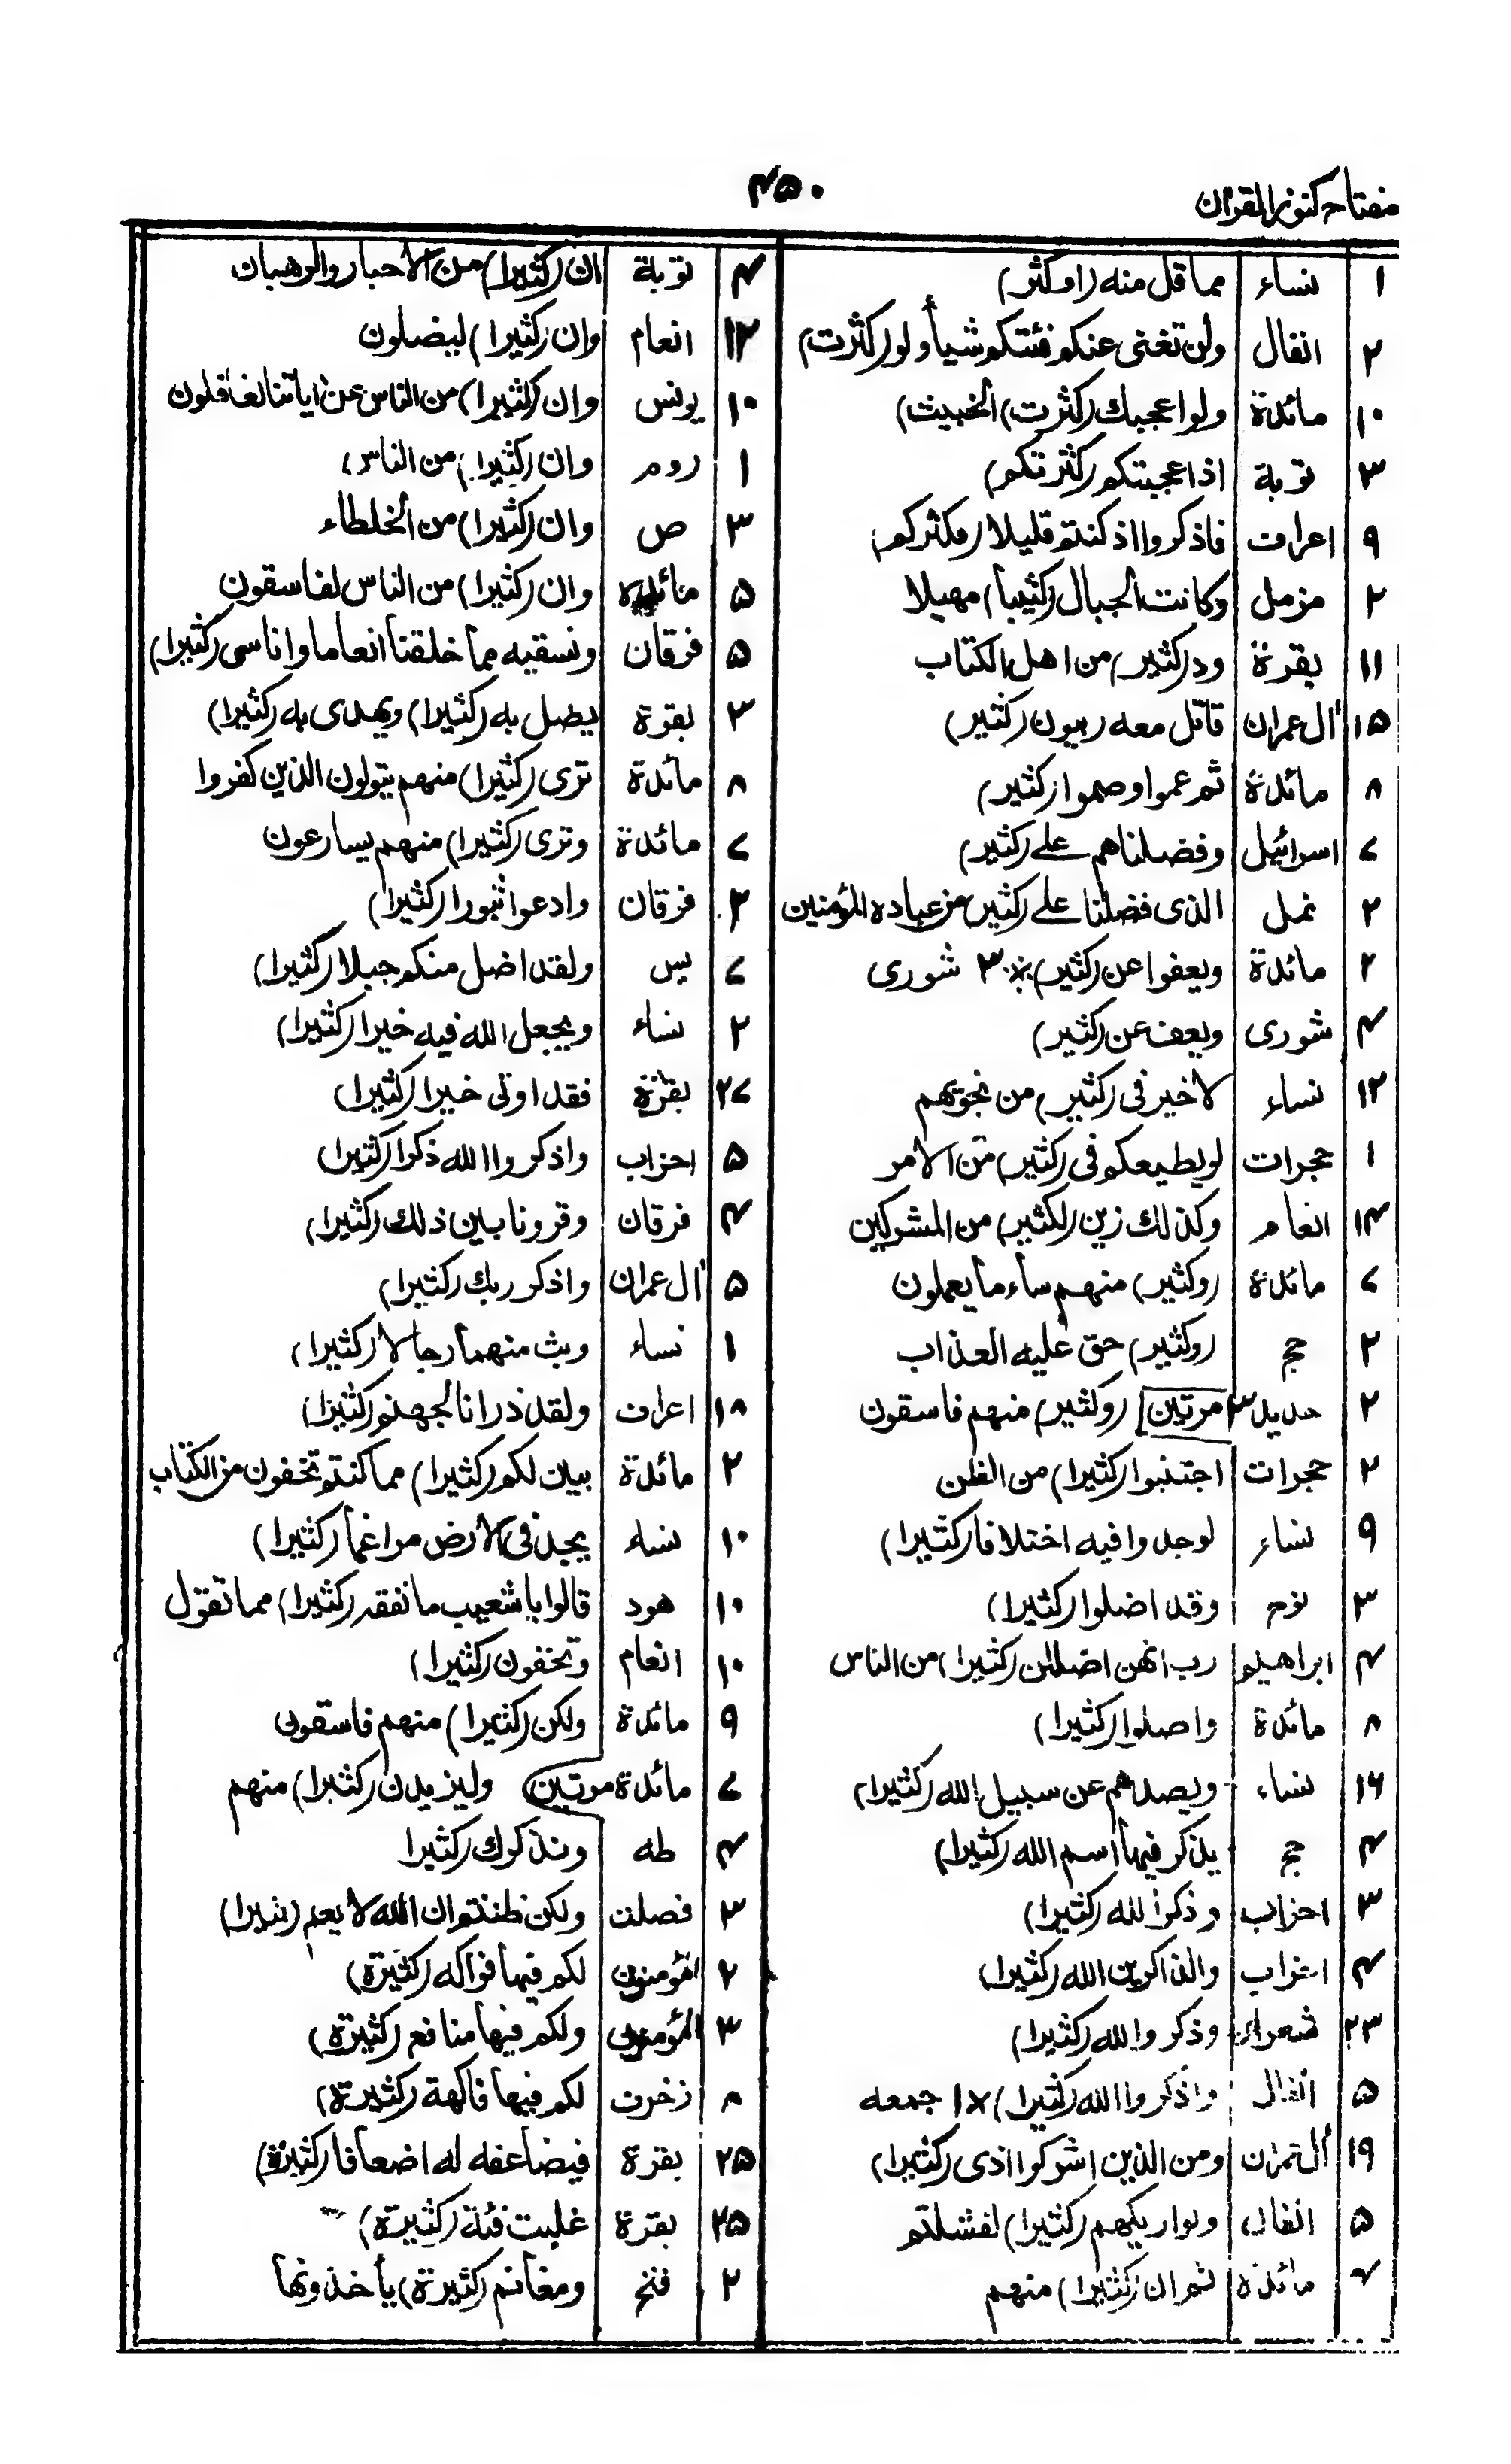 مفتاح كنوز القران
۴۵۰
۱ نساء مما قل منه (او كثر)
۲ انفال ولن تغنى عنكم فئتكم شيأ ولو (كثرت)
۱۰ مائدة ولو اعجبك (كثرت) الخبيث)
۳ توبة اذا عجبتكم (كثرتكم)
۹ اعراف فاذكروا اذ كنتم قليلا (فكثركم)
۲ مزمل وكانت الجبال (كثيبا) مهيلا
۱۱ بقرة ود (كثير) من اهل الكتاب
۱۵ ال عمران قاتل معه ربيون (كثير)
۸ مائدة ثم عموا وصموا (كثير)
۷ اسرائيل وفضلناهم على (كثير)
۲ نمل الذى فضلنا على (كثير) من عباده المؤمنين
۲ مائدة ويعفوا عن (كثير) ※ ۳ شورى
۴ شورى ويعف عن (كثير)
۱۲ نساء لا خير فى (كثير) من نجوىهم
۱ حجرات لو يطيعكم فى (كثير) من الامر
۱۴ انعام وكذلك زين (لكثير) من المشركين
۷ مائدة (وكثير) منهم ساء ما يعملون
۲ حج (وكثير) حق عليه العذاب
۲ حديد ۳ مرتين] (وكثير) منهم فاسقون
۲ حجرات اجتنبوا (كثيرا) من الظن
۹ نساء لوجدوا فيه اختلافا (كثيرا)
۳ نوح وقد اضلوا (كثيرا)
۴ ابراهيم رب انهن اضللن (كثيرا) من الناس
۸ مائدة واضلوا (كثيرا)
۱۶ نساء وبصدهم عن سبيل الله (كثيرا)
۴ حج يذكر فيها اسم الله (كثيرا)
۳ احزاب وذكر الله (كثيرا)
۴ احزاب والذاكرين الله (كثيرا)
۲۳ شعراء وذكروا الله (كثيرا)
۵ انفال واذكروا الله (كثيرا) × ۱ جمعه
۱۹ ال عمران ومن الذين اشركوا اذى (كثيرا)
۵ انفال ولو اريكهم (كثيرا) لفشلتم
مائدة ثم ان (كثيرا) منهم
۴ توبة ان (كثيرا) من الاحبار والرهبان
۱۲ انعام وان (كثيرا) ليضلون
۱۰ يونس وان (كثيرا) من الناس عن اياتنا لغافلون
۱ روم وان (كثيرا) من الناس)
۳ ص وان (كثيرا) من الخلطاء
۵ مائدة وان (كثيرا) من الناس لفاسقون
۵ فرقان ونسقيه مما خلقنا انعاما واناسى (كثيرا)
۳ بقرة يضل به (كثيرا) ويهدى به (كثيرا)
۸ مائدة ترى (كثيرا) منهم يتولون الذين كفروا
۷ مائدة وترى (كثيرا) منهم يسارعون
۲ فرقان وادعوا ثبورا (كثيرا)
۷ يس ولقد اضل منكم جبلا (كثيرا)
۲ نساء ويجعل الله فيه خيرا (كثيرا)
۲۷ بقرة فقد اوتى خيرا (كثيرا)
۵ احزاب واذكروا الله ذكرا (كثيرا)
۴ فرقان وقرونا بين ذلك (كثيرا)
۵ ال عمران واذكر ربك (كثيرا)
۱ نساء وبث منهما رجالا (كثيرا)
۱۸ اعراف ولقد ذرانا لجهنم (كثيرا)
۲ مائدة يبين لكم (كثيرا) مما كنتم تخفون من الكتاب
۱۰ نساء يجد فى الارض مراغما (كثيرا)
۱۰ هود قالوا ياشعيب ما نفقه (كثيرا) مما تقول
۱۰ انعام وتخفون (كثيرا)
۹ مائدة ولكن (كثيرا) منهم فاسقون
۷ مائدة مرتين وليزيدن (كثيرا) منهم
۴ طه ونذكرك (كثيرا
۳ فصلت ولكن ظننتم ان الله لا يعلم (كثيرا)
۲ المؤمنون لكم فيها فواكه (كثيرة)
۳ المؤمنون ولكم فيها منافع (كثيرة)
۸ زخرف لكم فيها فاكهة (كثيرة)
۲۵ بقرة فيضاعفه له اضعافا (كثيرة)
۲۵ بقرة غلبت فئة (كثيرة)
۲ فتح ومغانم (كثيرة) يأخذونها